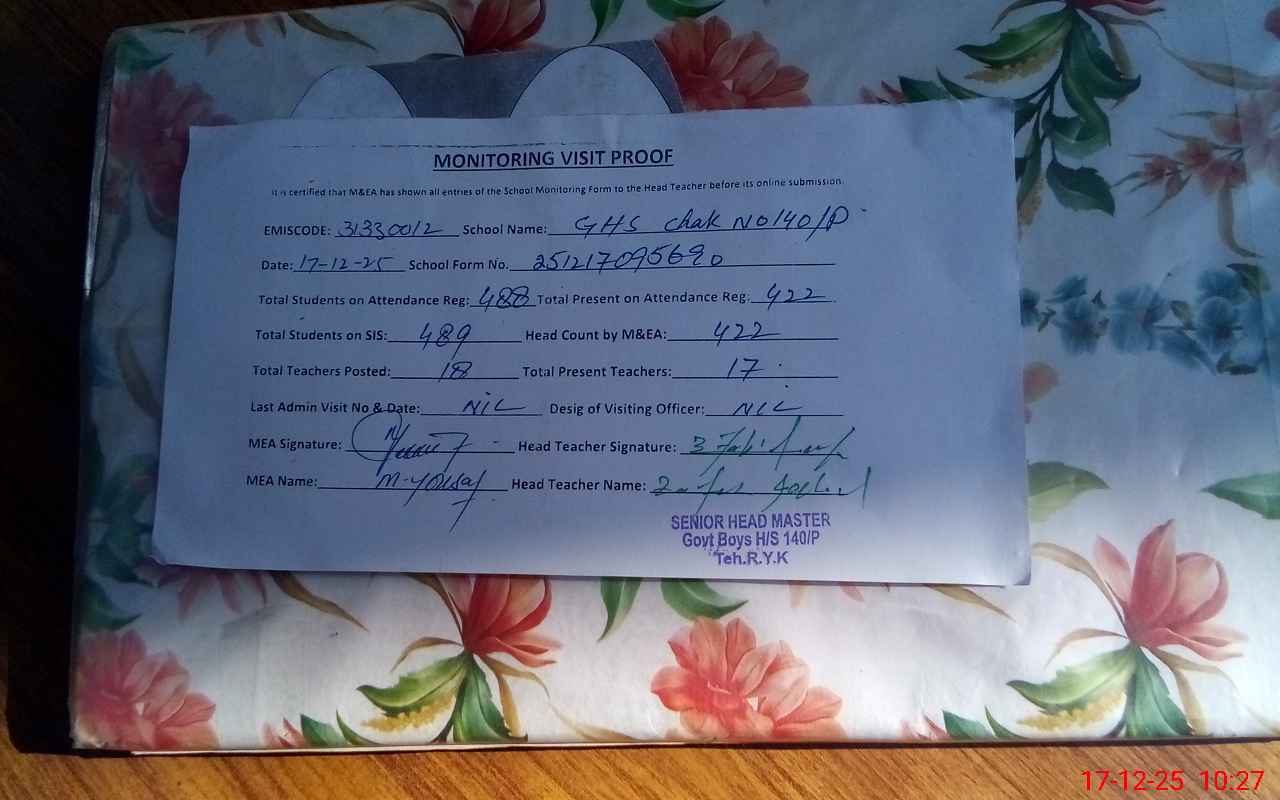 MONITORING VISIT PROOF
It is certified that M&EA has shown all entries of the School Monitoring Form to the Head Teacher before its online submission.
EMISCODE: 31330012 School Name: GHS Chak NO 140/P
Date: 17-12-25 School Form No. 251217095690
Total Students on Attendance Reg: 488 Total Present on Attendance Reg: 422
Total Students on SIS: 489 Head Count by M&EA: 422
Total Teachers Posted: 18 Total Present Teachers: 17
Last Admin Visit No & Date: NIL Desig of Visiting Officer: NIL
MEA Signature: Head Teacher Signature:
MEA Name: M-YOUSAF Head Teacher Name:
SENIOR HEAD MASTER
Govt Boys H/S 140/P
Teh.R.Y.K
17-12-25 10:27